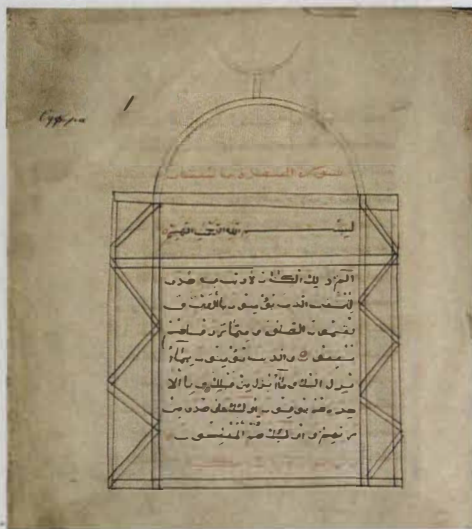 1
سورة البقرة
بسم الله الرحمن الرحيم
الم ذلك الكتاب لا ريب فيه هدى
للمتقين الذين يؤمنون بالغيب و
يقيمون الصلوة ومما رزقناهم
ينفقون والذين يؤمنون بما أ
نزل اليك وما أنزل من قبلك وبالا
خرة هم يوقنون اولئك على هدى من
ربهم واولئك هم المفلحون